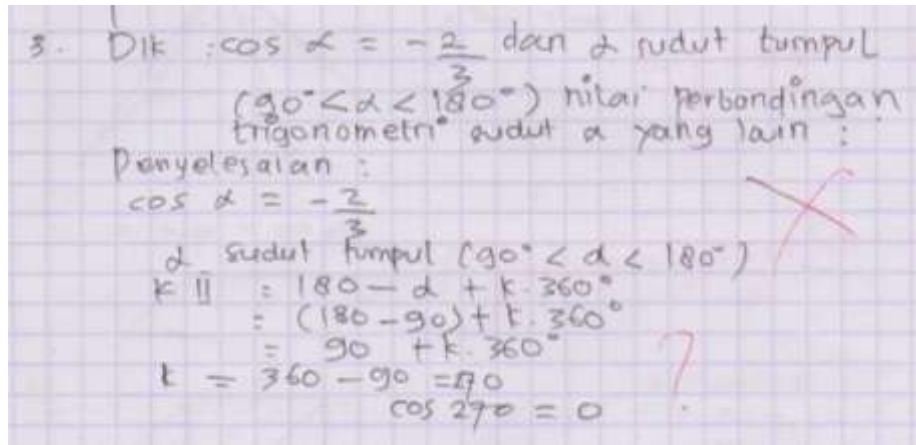 3. Dik : cos α = - 2/3 dan α sudut tumpul
(90° < α < 180°) nilai perbandingan
trigonometri sudut a yang lain :
Penyelesaian :
cos α = - 2/3
α sudut tumpul (90° < α < 180°)
k II = 180 - α + k. 360°
= (180 - 90) + k. 360°
= 90 + k. 360°
k = 360 - 90 = 270
cos 270 = 0
?